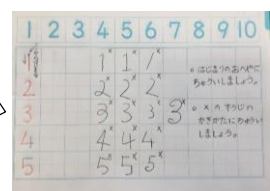 1 2 3 4 5 6 7 8 9 10
1 1 1 1
2 2 2 2
3 3 3 3 3
4 4 4 4
5 5 5 5
。はじまりのおへやに
ちゅういしましょう。
。×のすうじの
かきかたにちゅうい
しましょう。